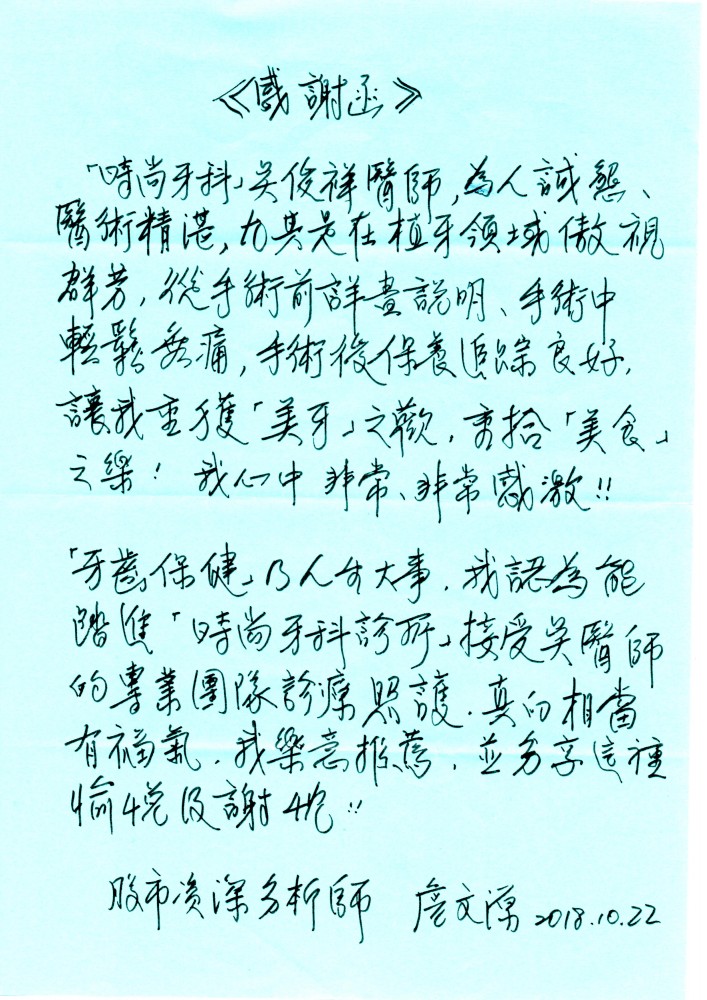 《感謝函》
「時尚牙科」吳俊祥醫師,為人誠懇、
醫術精湛,尤其是在植牙領域傲視
群芳,從手術前詳盡說明、手術中
輕鬆無痛,手術後保養追踪良好,
讓我重獲「美牙」之歡,重拾「美食」
之樂! 我心中非常、非常感激!!
「牙齒保健」乃人生大事,我認為能
踏進「時尚牙科診所」接受吳醫師
的專業團隊診療照護,真的相當
有福氣,我樂意推薦,並分享這種
愉悅及謝忱!!
股市資深分析師 詹文源 2018.10.22